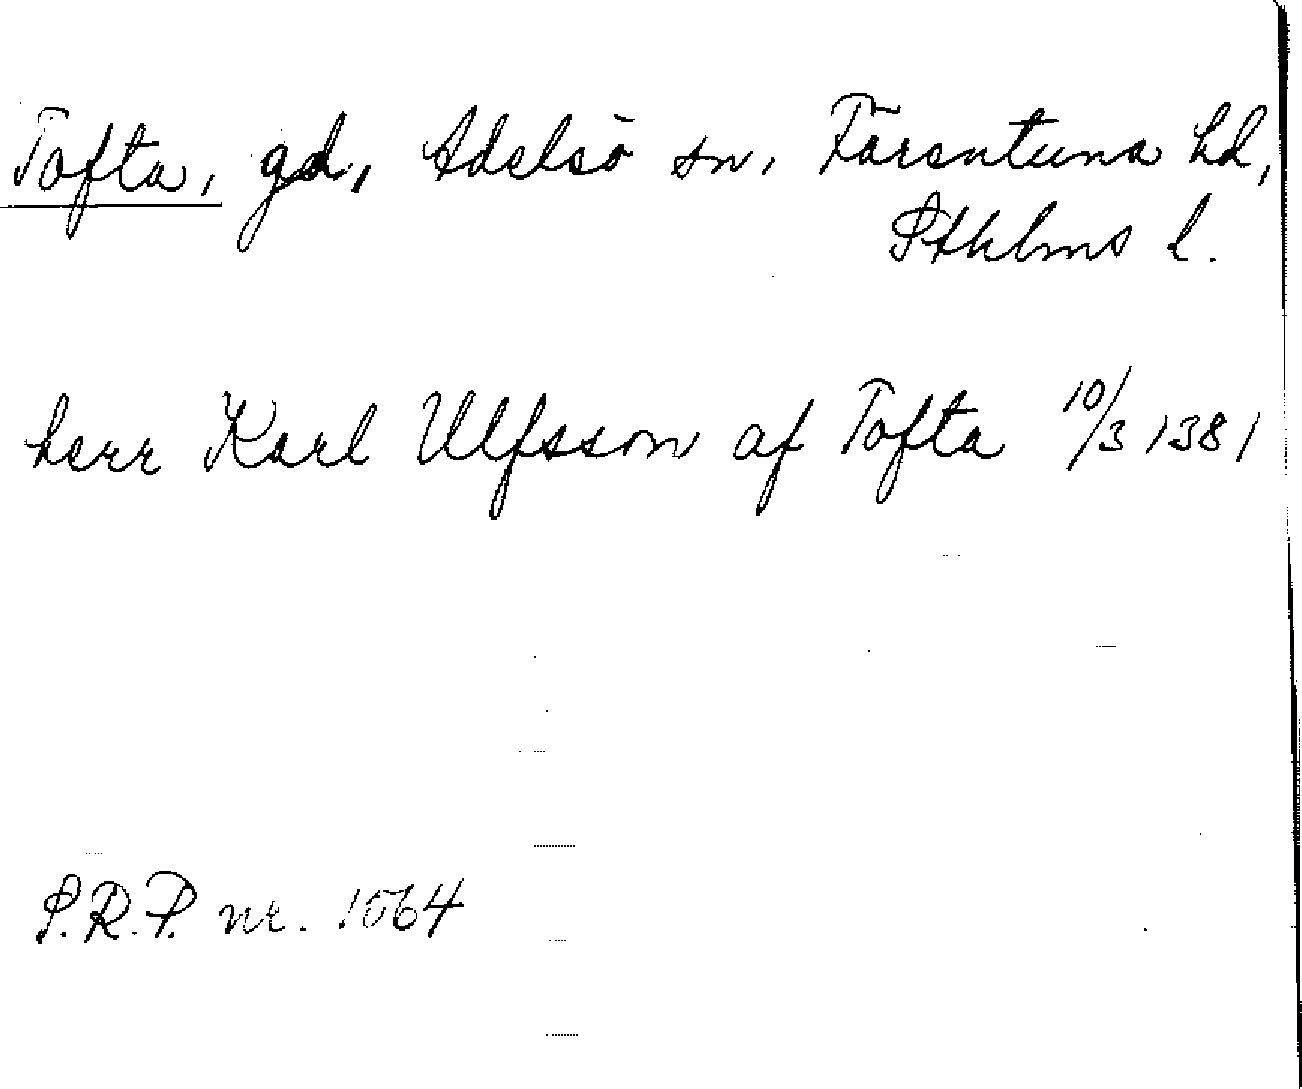 Tofta, gd, Adelsö sn, Färentuna hd,
Sthlms l.
herr Karl Ulfsson af Tofta 10/3 1381
S.R.P. nr. 1564